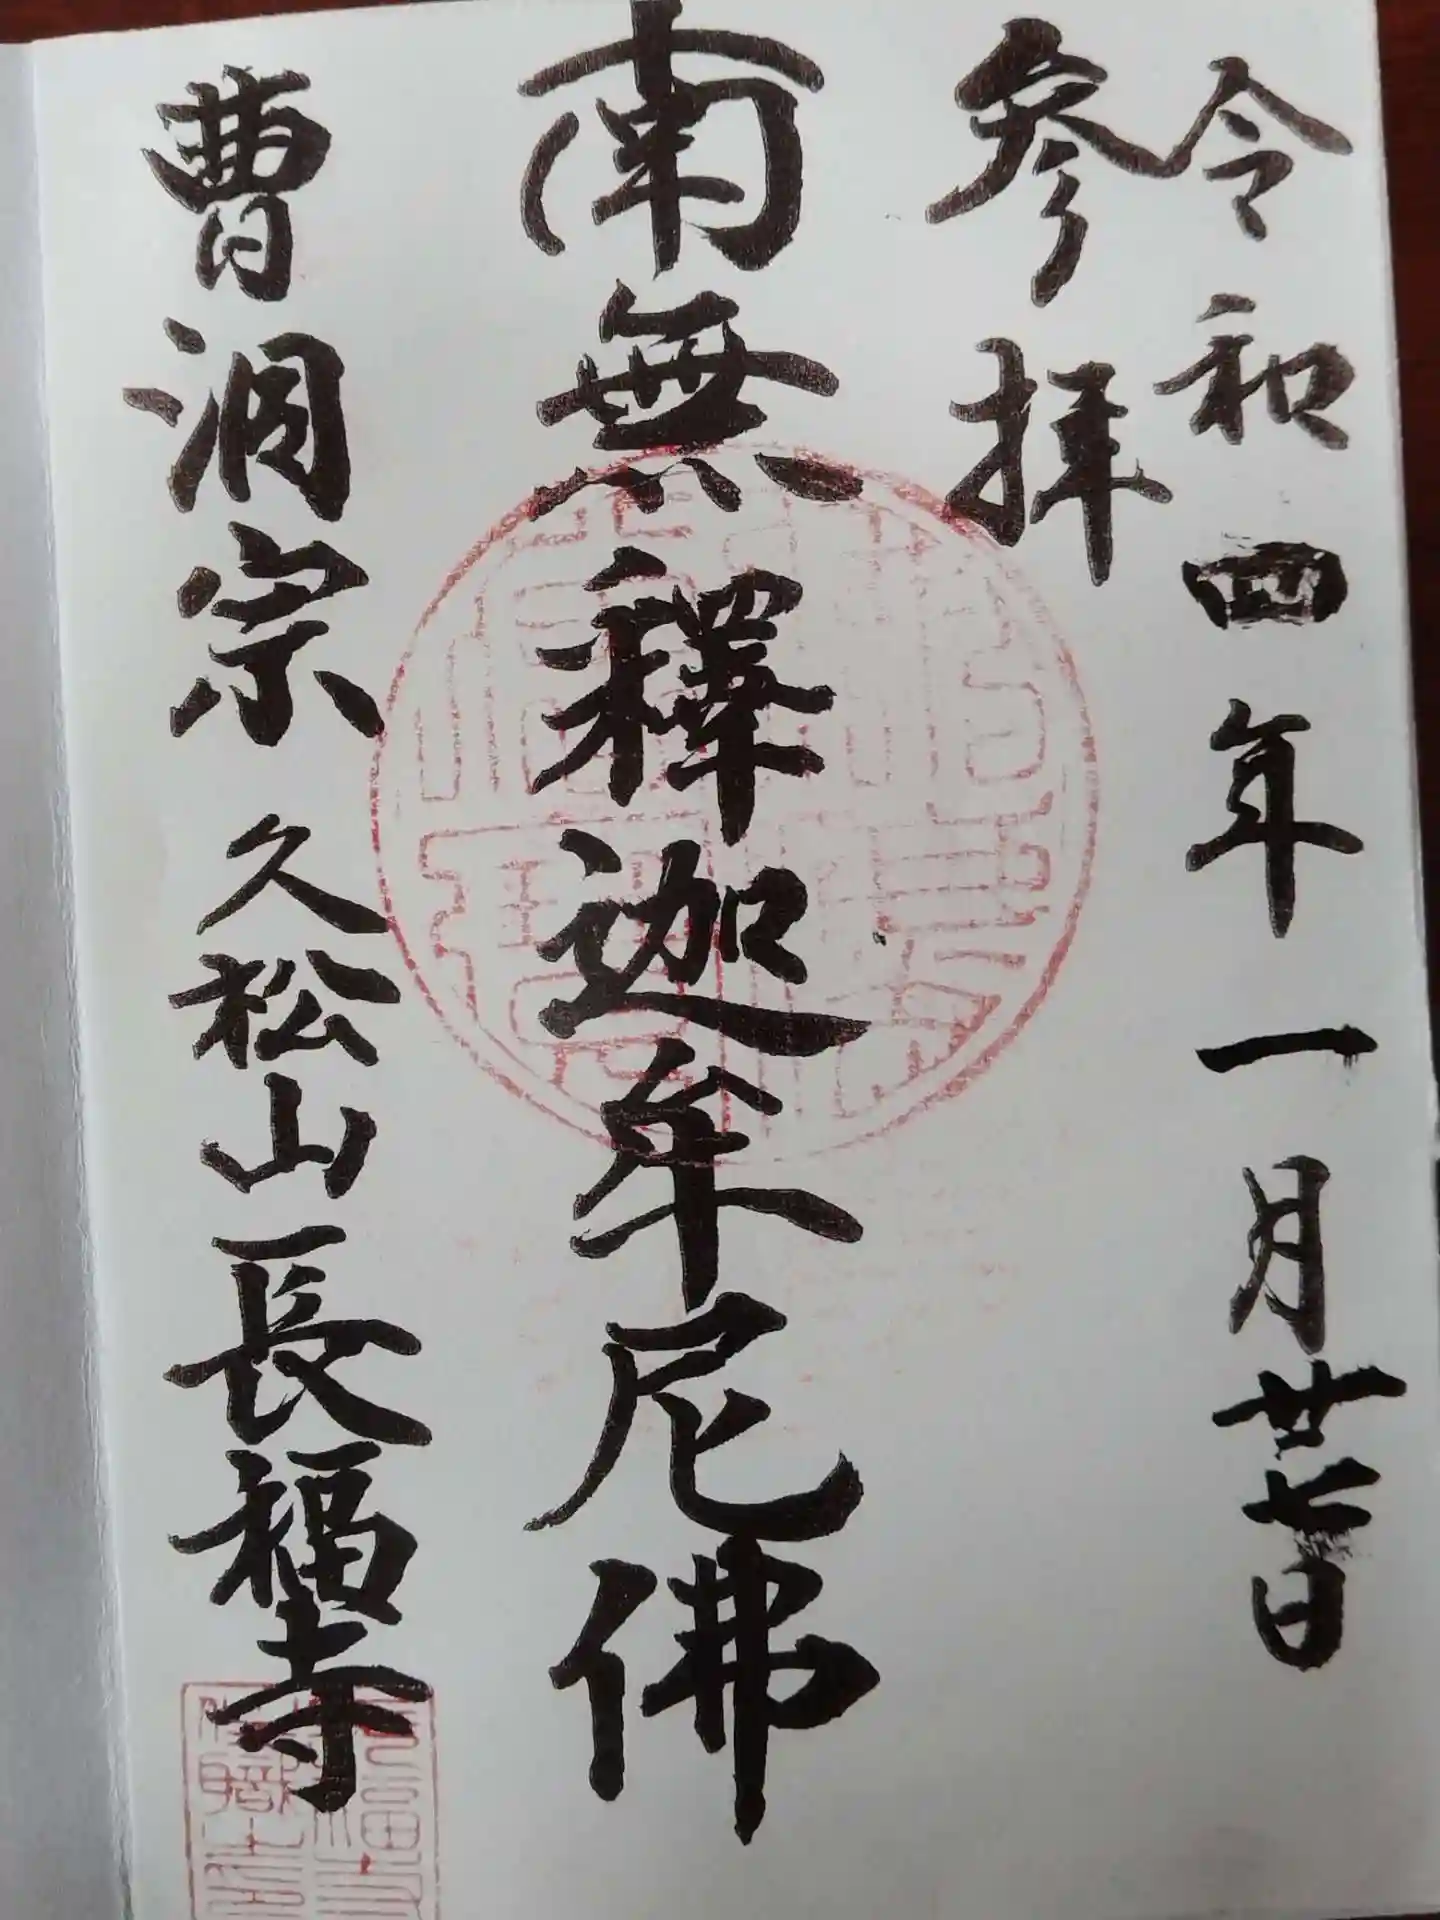 令和四年一月廿七日
参拝
南無釋迦牟尼佛
曹洞宗 久松山長福寺